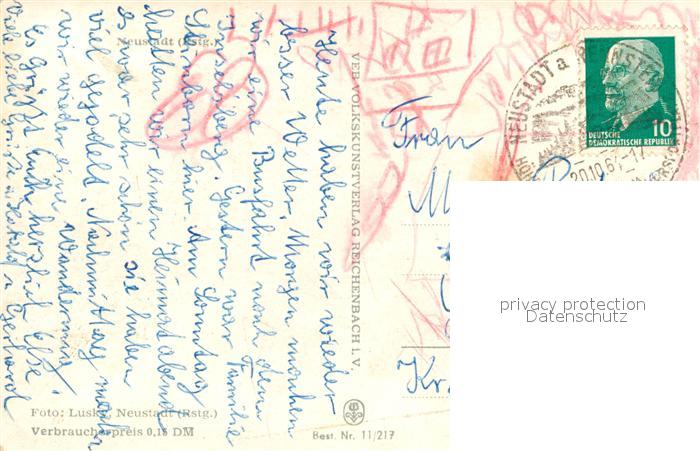 Neustadt (Rstg.)
Heute haben wir wieder
besser Wetter. Morgen machen
wir eine Busfahrt nach dem
Inselsberg. Gestern war Familie
hier. Am Sonntag
hatten wir einen Heimatabend
es war sehr schön sie haben
viel gejodelt. Nachmittag machen
wir wieder eine Wanderung.
Es grüßt Euch herzlich Else
Viele liebe Grüße u. Gerhard
VEB VOLKSKUNSTVERLAG REICHENBACH i. V.
Foto: Luske, Neustadt (Rstg.)
Verbraucherpreis 0,15 DM
Best. Nr. 11/217
Frau
M
Kr.
NEUSTADT a RENNSTEIG
20.10.6 -17
10
DEUTSCHE
DEMOKRATISCHE REPUBLIK
privacy protection
Datenschutz